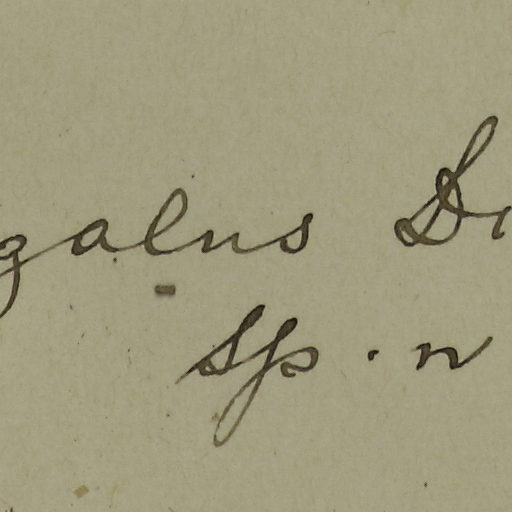 galus Di
Sp. n